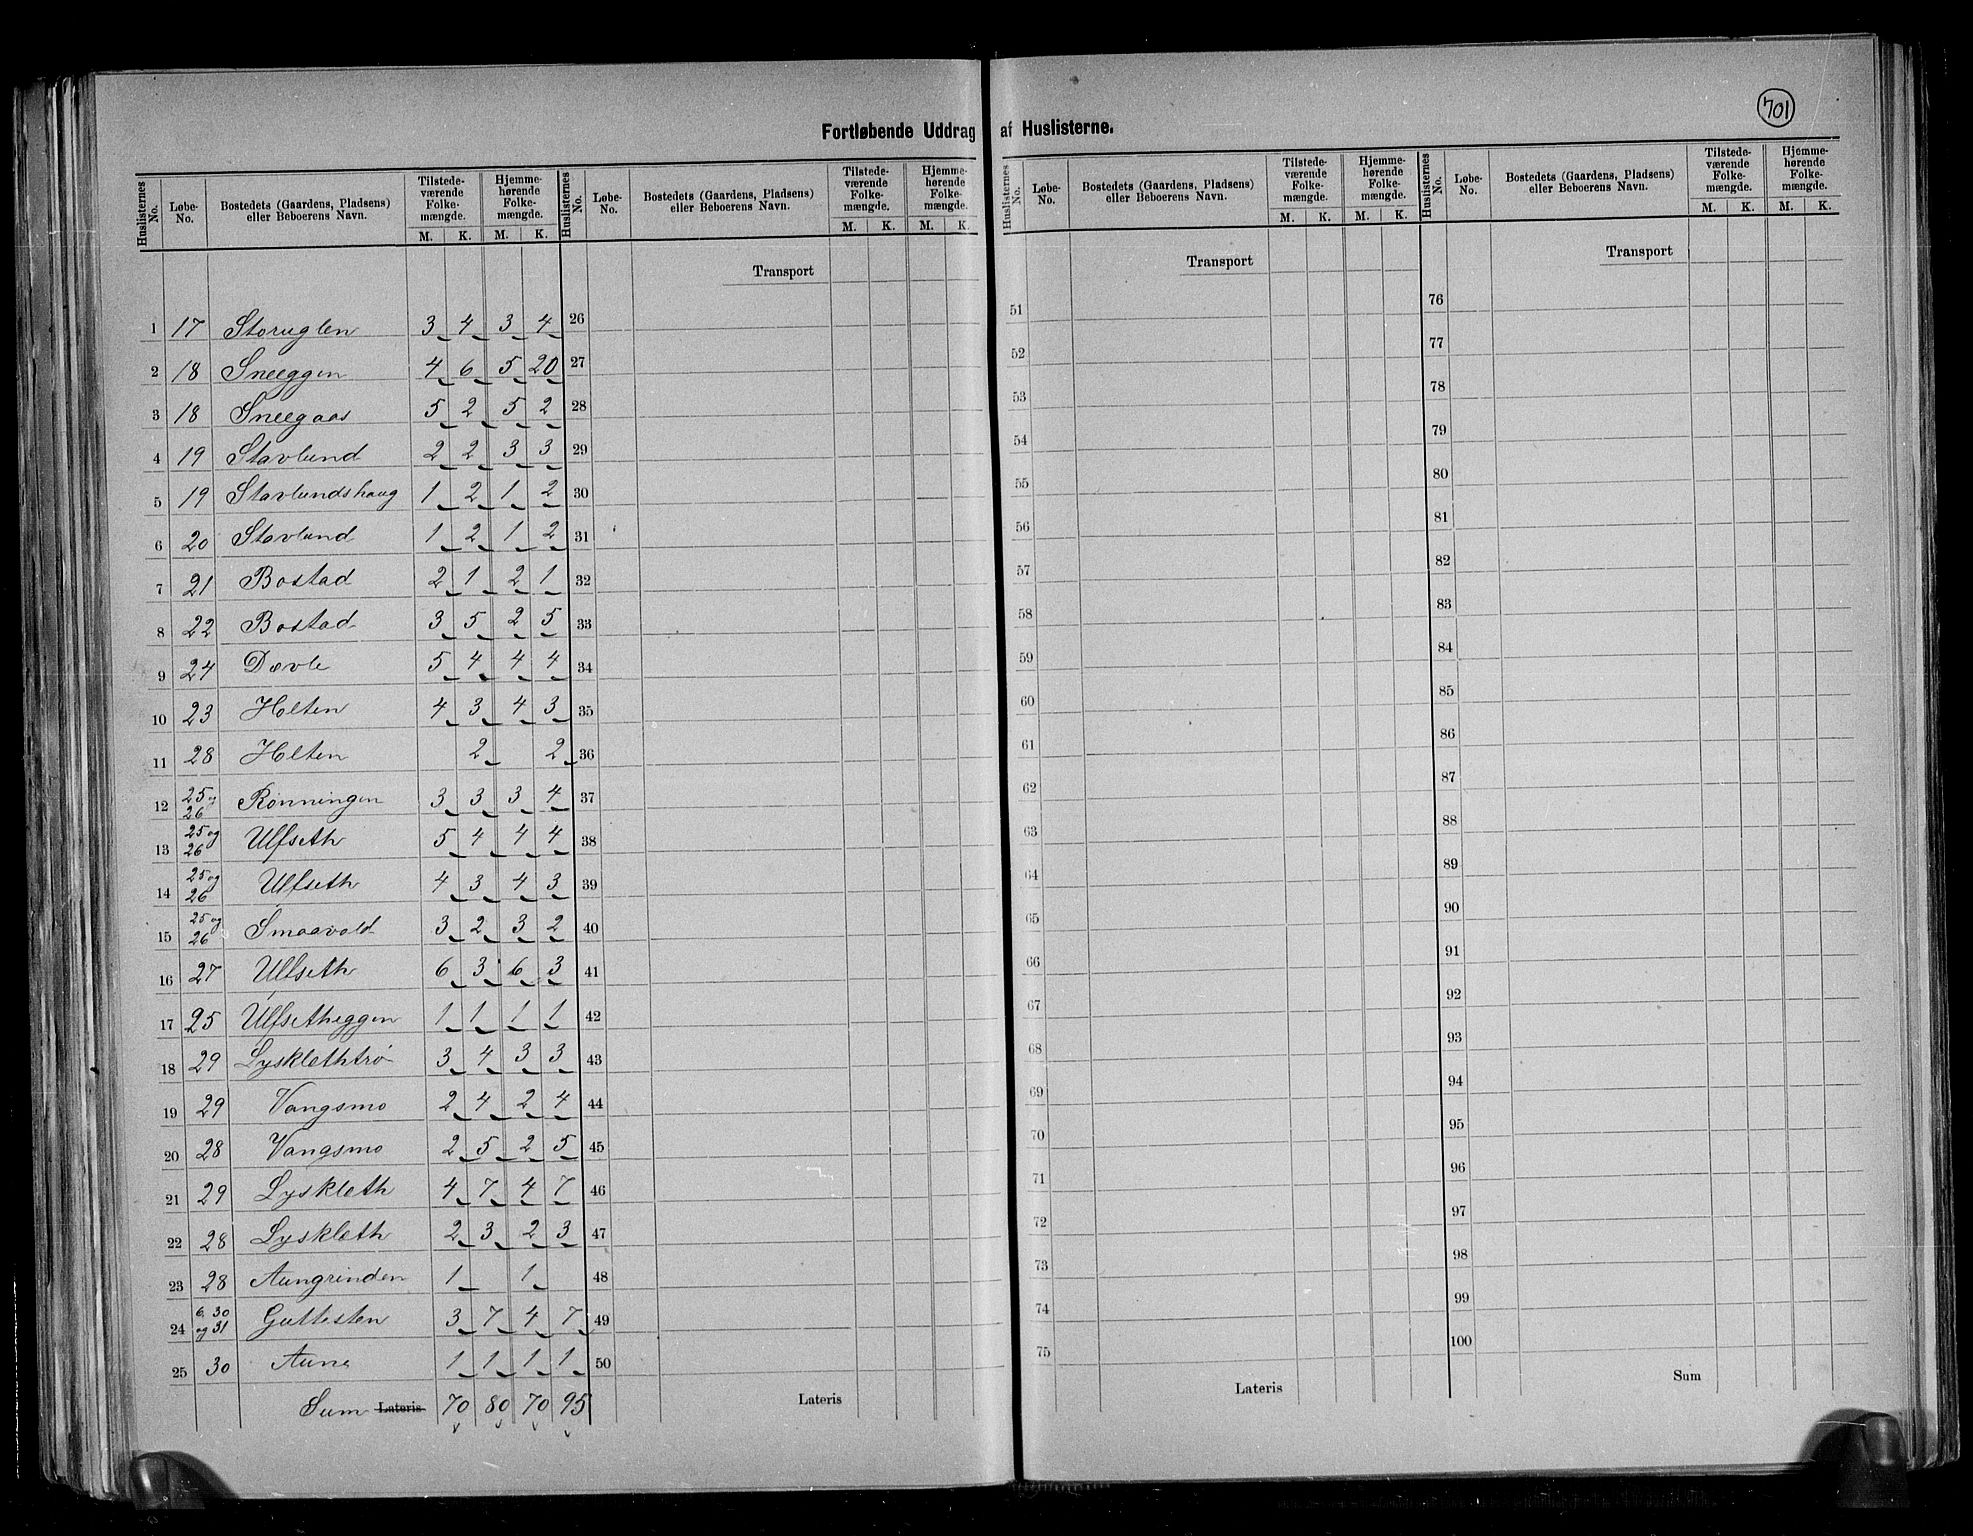 701
Fortløbende Uddrag af Huslisterne.
Huslisternes No. | Løbe-No. | Bostedets (Gaardens, Pladsens) eller Beboerens Navn. | Tilstedeværende Folkemængde. M. K. | Hjemmehørende Folkemængde. M. K.
1 17 Storuglen 3 4 3 4
2 18 Sneeggen 4 6 5 20
3 18 Sneegaas 5 2 5 2
4 19 Stavlund 2 2 3 3
5 19 Stavlundshaug 1 2 1 2
6 20 Stavlund 1 2 1 2
7 21 Bostad 2 1 2 1
8 22 Bostad 3 5 2 5
9 24 Dævle 5 4 4 4
10 23 Holten 4 3 4 3
11 28 Holten 2 2
12 25 og 26 Rønningen 3 3 3 4
13 25 og 26 Ulfseth 5 4 4 4
14 25 og 26 Ulfseth 4 3 4 3
15 25 og 26 Smaavold 3 2 3 2
16 27 Ulfseth 6 3 6 3
17 25 Ulfsetheggen 1 1 1 1
18 29 Lysklethtrø 3 4 3 3
19 29 Vangsmo 2 4 2 4
20 28 Vangsmo 2 5 2 5
21 29 Lyskleth 4 7 4 7
22 28 Lyskleth 2 3 2 3
23 28 Aungrinden 1 1
24 6. 30 og 31 Guttesten 3 7 4 7
25 30 Aune 1 1 1 1
Sum Lateris 70 80 70 95
Huslisternes No. | Løbe-No. | Bostedets (Gaardens, Pladsens) eller Beboerens Navn. | Tilstedeværende Folkemængde. M. K. | Hjemmehørende Folkemængde. M. K.
Transport
26
27
28
29
30
31
32
33
34
35
36
37
38
39
40
41
42
43
44
45
46
47
48
49
50
Lateris
Huslisternes No. | Løbe-No. | Bostedets (Gaardens, Pladsens) eller Beboerens Navn. | Tilstedeværende Folkemængde. M. K. | Hjemmehørende Folkemængde. M. K.
Transport
51
52
53
54
55
56
57
58
59
60
61
62
63
64
65
66
67
68
69
70
71
72
73
74
75
Lateris
Huslisternes No. | Løbe-No. | Bostedets (Gaardens, Pladsens) eller Beboerens Navn. | Tilstedeværende Folkemængde. M. K. | Hjemmehørende Folkemængde. M. K.
Transport
76
77
78
79
80
81
82
83
84
85
86
87
88
89
90
91
92
93
94
95
96
97
98
99
100
Sum